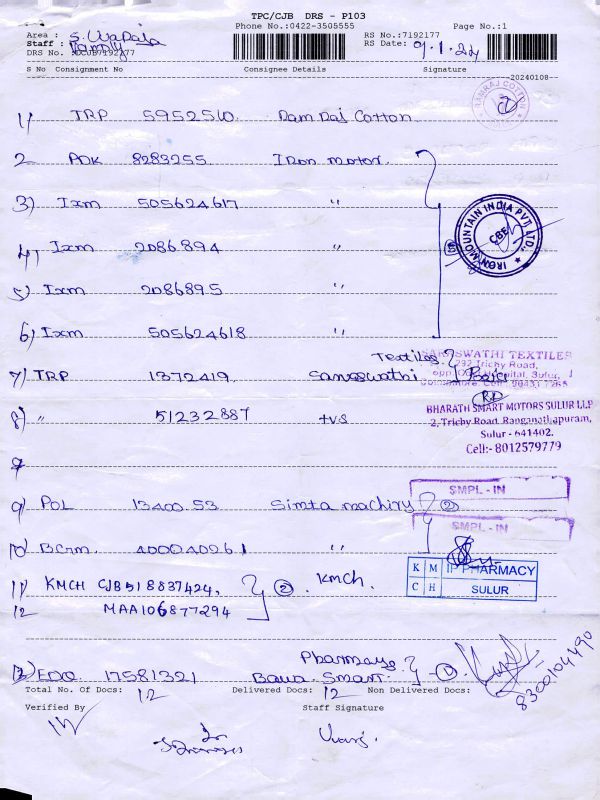 TPC/CJB DRS - P103
Phone No.:0422-3505555 Page No.:1
Area : RS No.:7192177
Staff : RS Date: 9.1.24
DRS No. :DCJB7192177
S No Consignment No Consignee Details Signature
20240108
RAMRAJ COTTON
1) TRP 5952510 Ram Raj Cotton
2 PDK 8283255 Iron motor.
3) Ixm 505624617 "
IRON MOUNTAIN INDIA PVT. LTD., CBE
4) Ixm 2086894 "
5) Ixm 2086895 "
6) Ixm 505624618 "
Textiles
SARASWATHI TEXTILES
292 Trichy Road,
7) TRP 1372419 Saraswathi
BHARATH SMART MOTORS SULUR LLP
2, Trichy Road, Ranganathapuram,
Sulur - 641402.
Cell:- 8012579779
8) " 51232887 tvs
9
SMPL - IN
9) POL 1340053 Simta machiry 2
SMPL - IN
10) BCrm. 400040261 "
KMCH IP PHARMACY SULUR
11) KMCH CJB518837424, 2 . kmch.
12 MAA106877294
Pharmacy
13) EDQ 17581321 Bawa Smart 1
8300104490
Total No. Of Docs: 12 Delivered Docs: 12 Non Delivered Docs:
Verified By Staff Signature